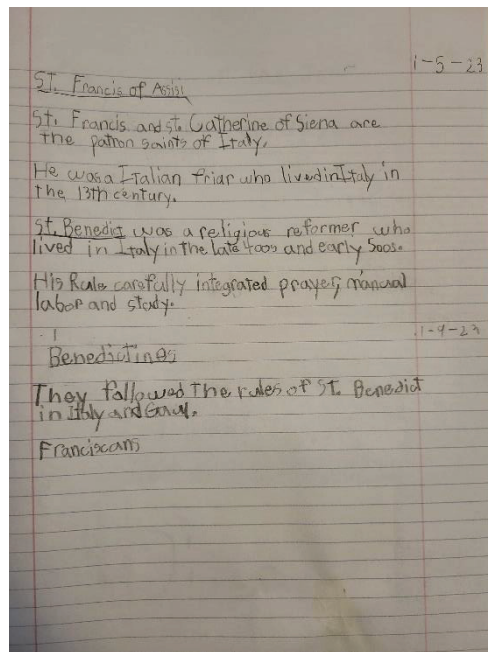 1-5-23
St. Francis of Assisi
St. Francis and St. Catherine of Siena are
the patron saints of Italy.
He was a Italian friar who lived in Italy in
the 13th century.
St. Benedict was a religious reformer who
lived in Italy in the late 400s and early 500s.
His Rule carefully integrated prayer, manual
labor and study.
1-9-23
Benedictines
They followed the rules of St. Benedict
in Italy and Gaul.
Franciscans